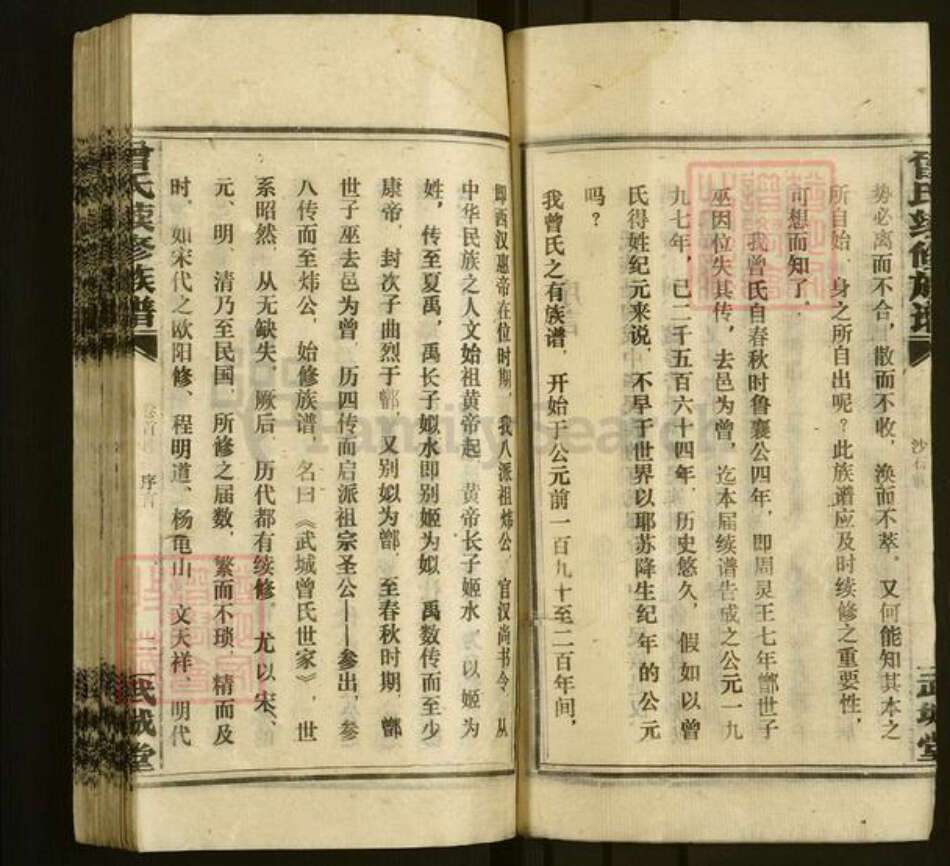 势必离而不合，散而不收，涣而不萃。又何能知其本之
所自始、身之所自出呢？此族谱应及时续修之重要性，
可想而知了。
我曾氏自春秋时鲁襄公四年，即周灵王七年鄫世子
巫因位失其传，去邑为曾，迄本届续谱告成之公元一九
九七年，已二千五百六十四年，历史悠久，假如以曾
氏得姓纪元来说，不早于世界以耶苏降生纪年的公元
吗？
我曾氏之有族谱，开始于公元前一百九十至二百年间，
即西汉惠帝在位时期，我八派祖炜公，官汉尚书令，从
中华民族之人文始祖黄帝起，黄帝长子姬水，以姬为
姓，传至夏禹，禹长子姒水即别姬为姒，禹数传而至少
康帝，封次子曲烈于鄫，又别姒为鄫，至春秋时期，鄫
世子巫去邑为曾，历四传而启派祖宗圣公——参出，参
八传而至炜公，始修族谱，名曰《武城曾氏世家》，世
系昭然，从无缺失，厥后，历代都有续修，尤以宋、
元、明、清乃至民国，所修之届数，繁而不琐，精而及
时，如宋代之欧阳修、程明道、杨龟山、文天祥、明代
曾氏续修族谱
序言
二
武城堂
曾氏续修族谱
武城堂
FamilySearch